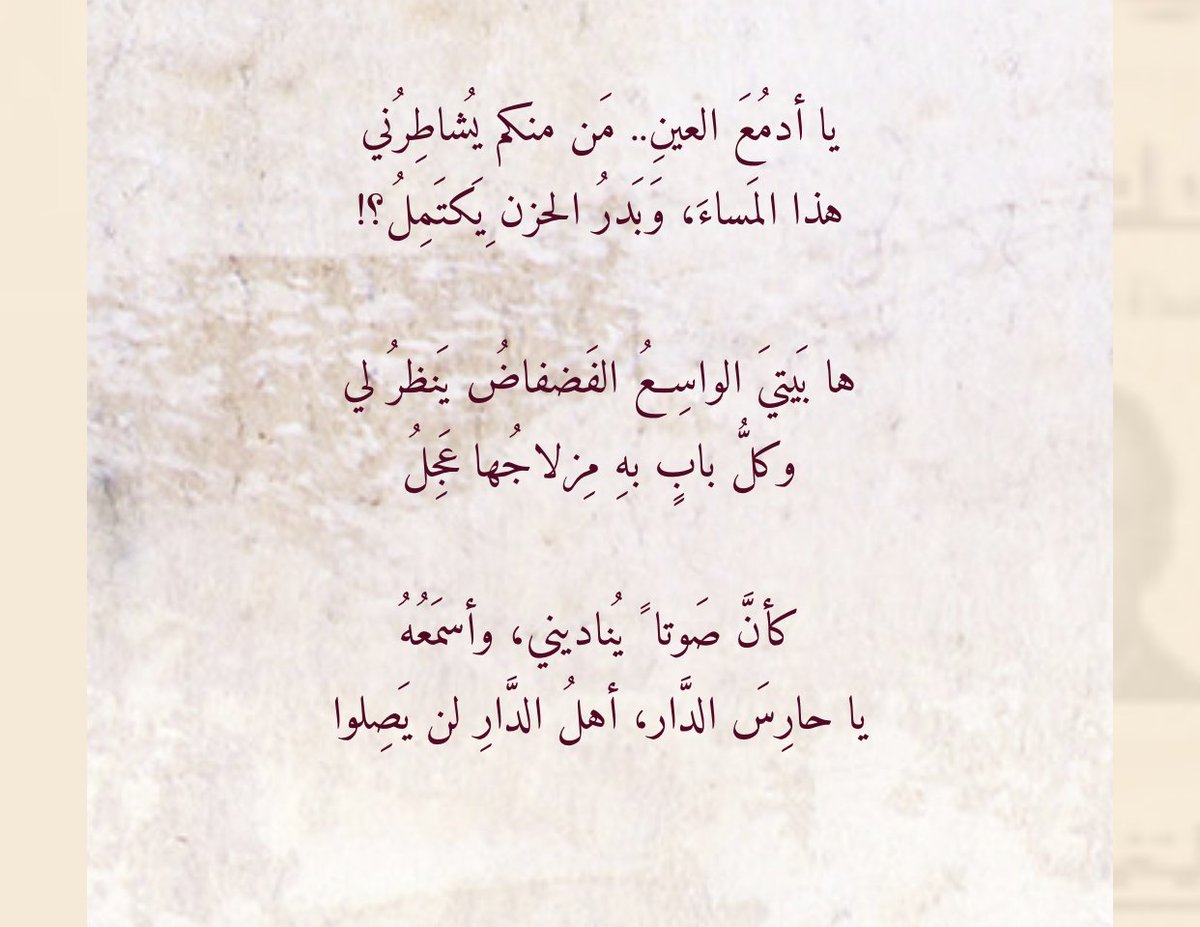 يا أدمُعَ العينِ.. مَن منكم يُشاطِرُني
هذا المَساءَ، وَبَدرُ الحزن ِيَكتَمِلُ؟!
ها بَيتيَ الواسِعُ الفَضفاضُ يَنظرُ لي
وكلُّ بابٍ بهِ مِزلاجُها عَجِلُ
كأنَّ صَوتا ً يُناديني، وأسمَعُهُ
يا حارِسَ الدَّار، أهلُ الدَّارِ لن يَصِلوا